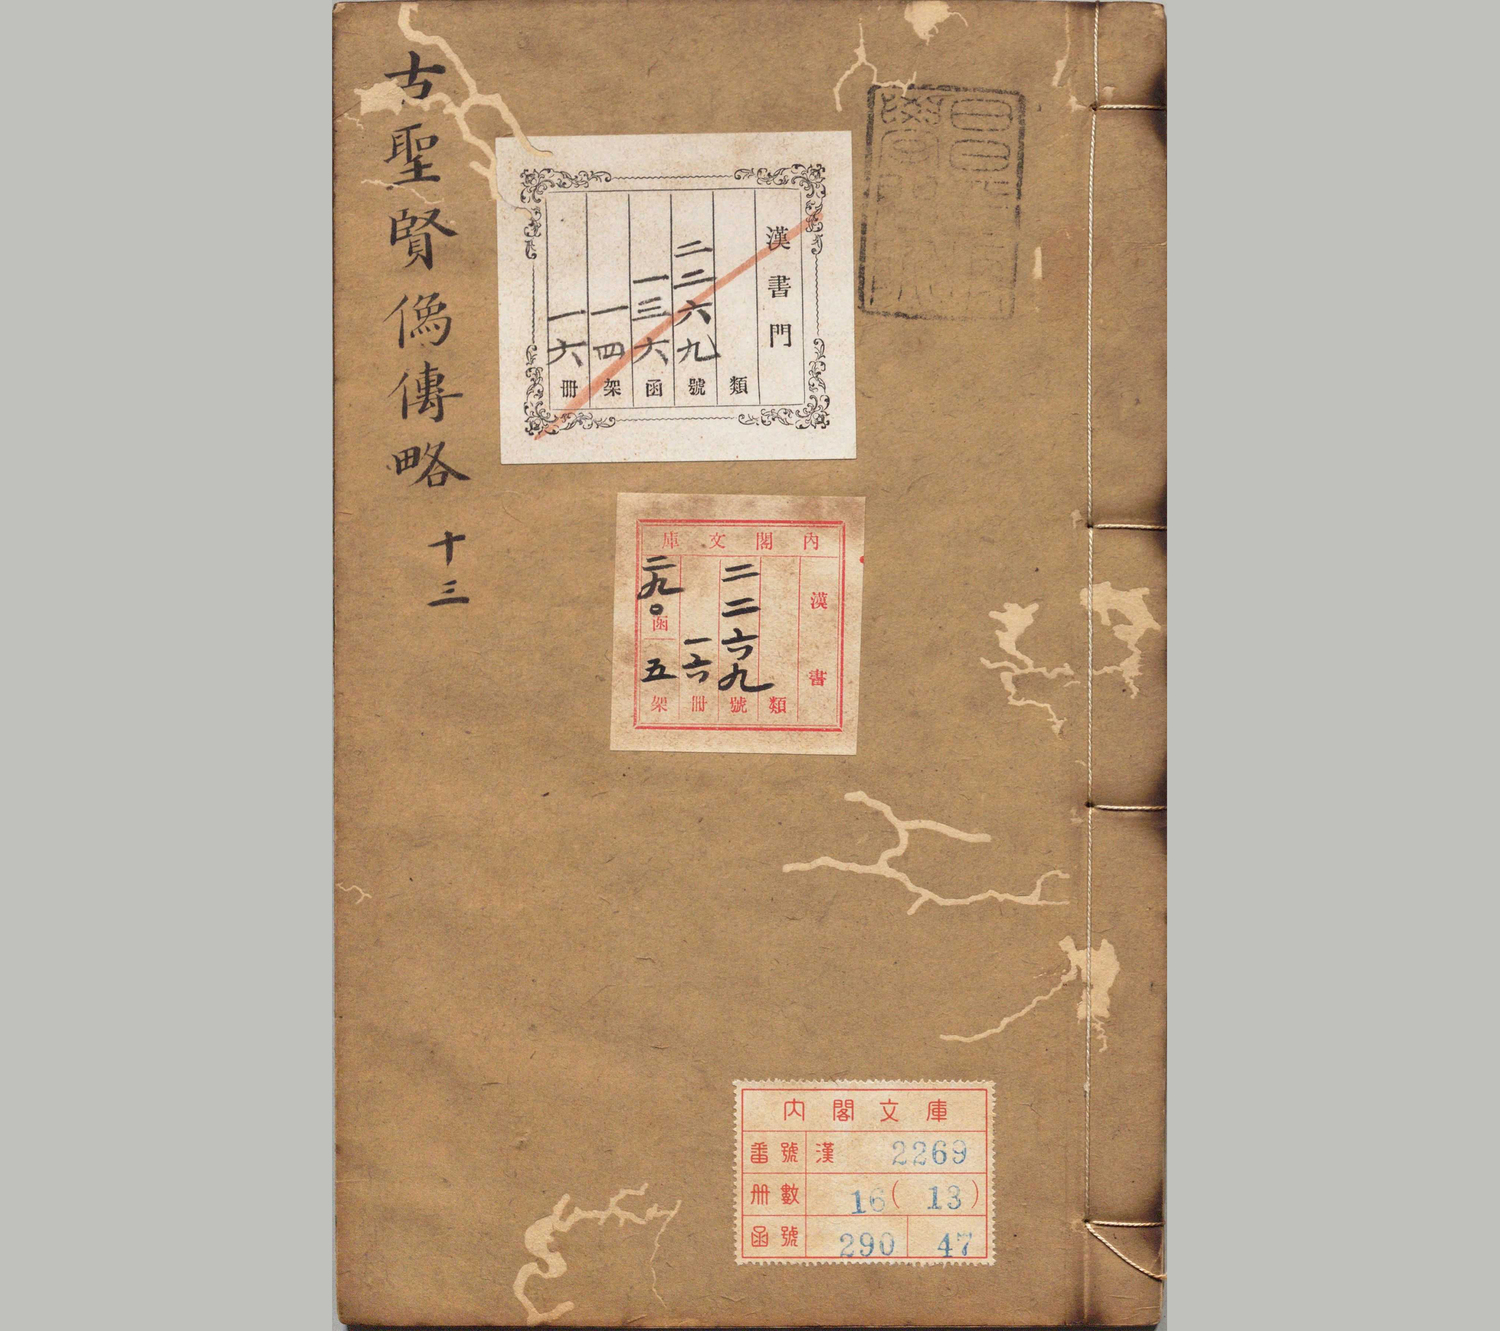 古聖賢像傳略 十三
昌平坂
學問所
漢書門
類
二二六九號
一三六函
一四架
一六冊
内閣文庫
漢書
類
二二六九號
一六冊
二九〇函
五架
内閣文庫
番號 漢 2269
冊數 16(13)
函號 290 47